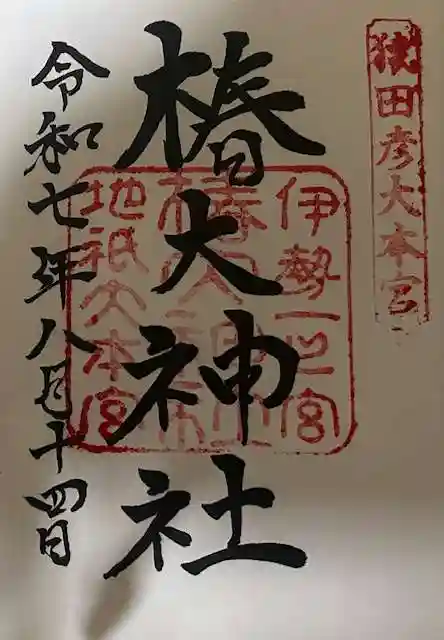 猿田彦大本宮
椿大神社
伊勢一之宮
椿大神社
地祇大本宮
令和七年八月十四日